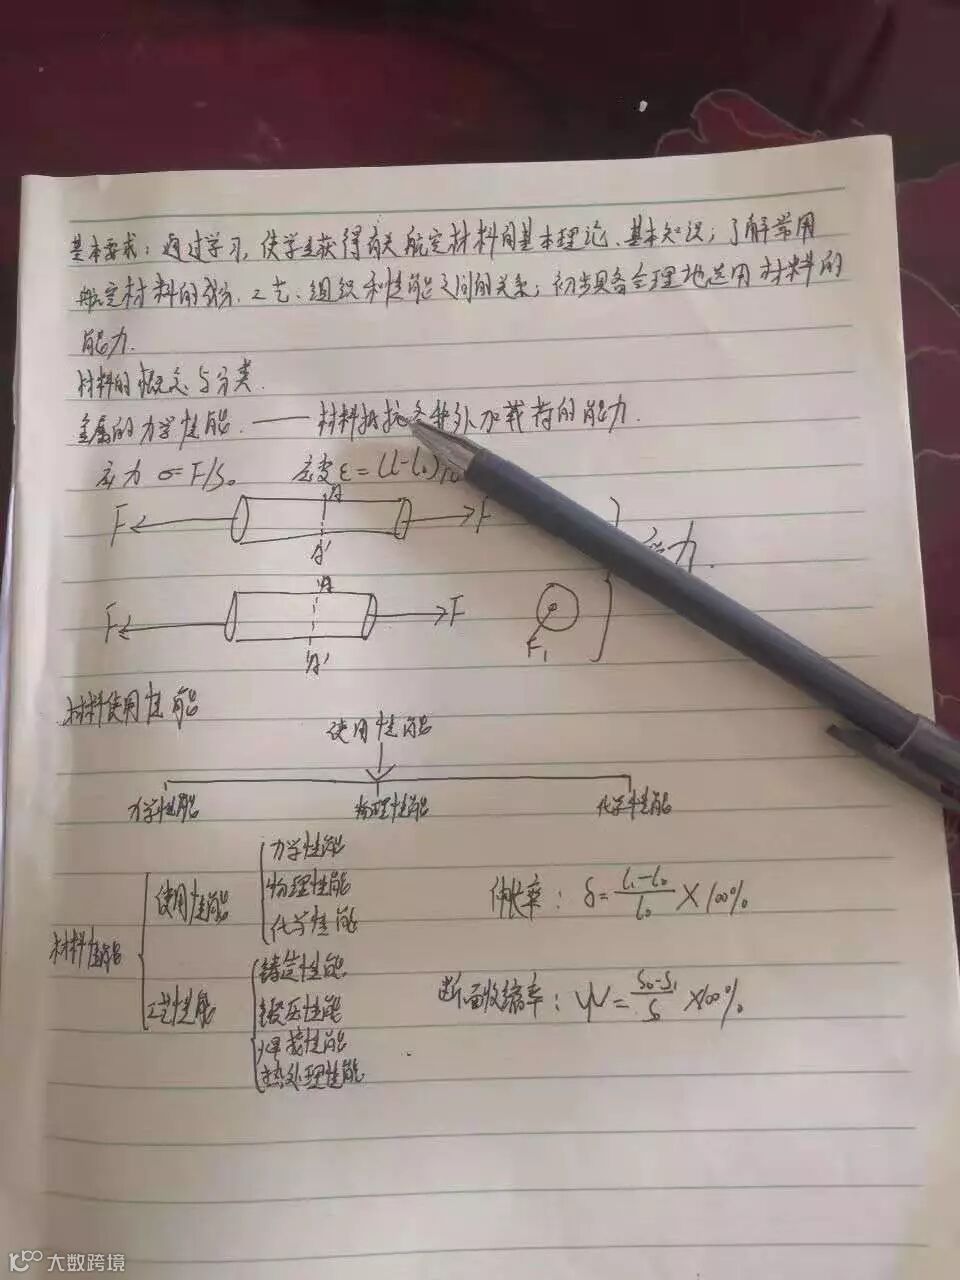 基本要求：通过学习，使学生获得有关航空材料的基本理论、基本知识；了解常用
航空材料的成份、工艺、组织和性能之间的关系；初步具备合理地选用材料的
能力.
材料的概念与分类.
金属的力学性能.——材料抵抗各种外加载荷的能力.
应力 σ=F/S₀ 应变 ε=(l-l₀)/
A
F F
A'
力.
A
F F
F₁
A'
材料使用性能
使用性能
力学性能 物理性能 化学性能
力学性能
使用性能 物理性能 伸长率：δ=(l₁-l₀)/l₀×100%
化学性能
材料性能
铸造性能
工艺性能 锻压性能 断面收缩率：ψ=(S₀-S₁)/S₀×100%
焊接性能
热处理性能
大数跨境